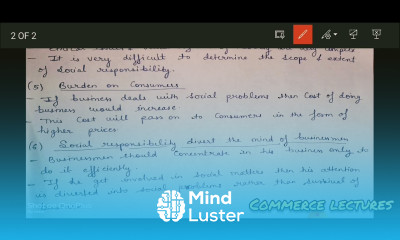 2 OF 2
- It is very difficult to determine the scope & extent
of social responsibility.
(5) Burden on Consumers
- If business deals with social problems then cost of doing
business would increase
- This Cost will pass on to Consumers in the form of
higher prices
(6) Social responsibility divert the mind of businessmen
- Businessmen should concentrate in his business only to
do it efficiently.
- If he get involved in social matters then his attention
is diverted into social problems
Mind
Luster
COMMERCE LECTURES